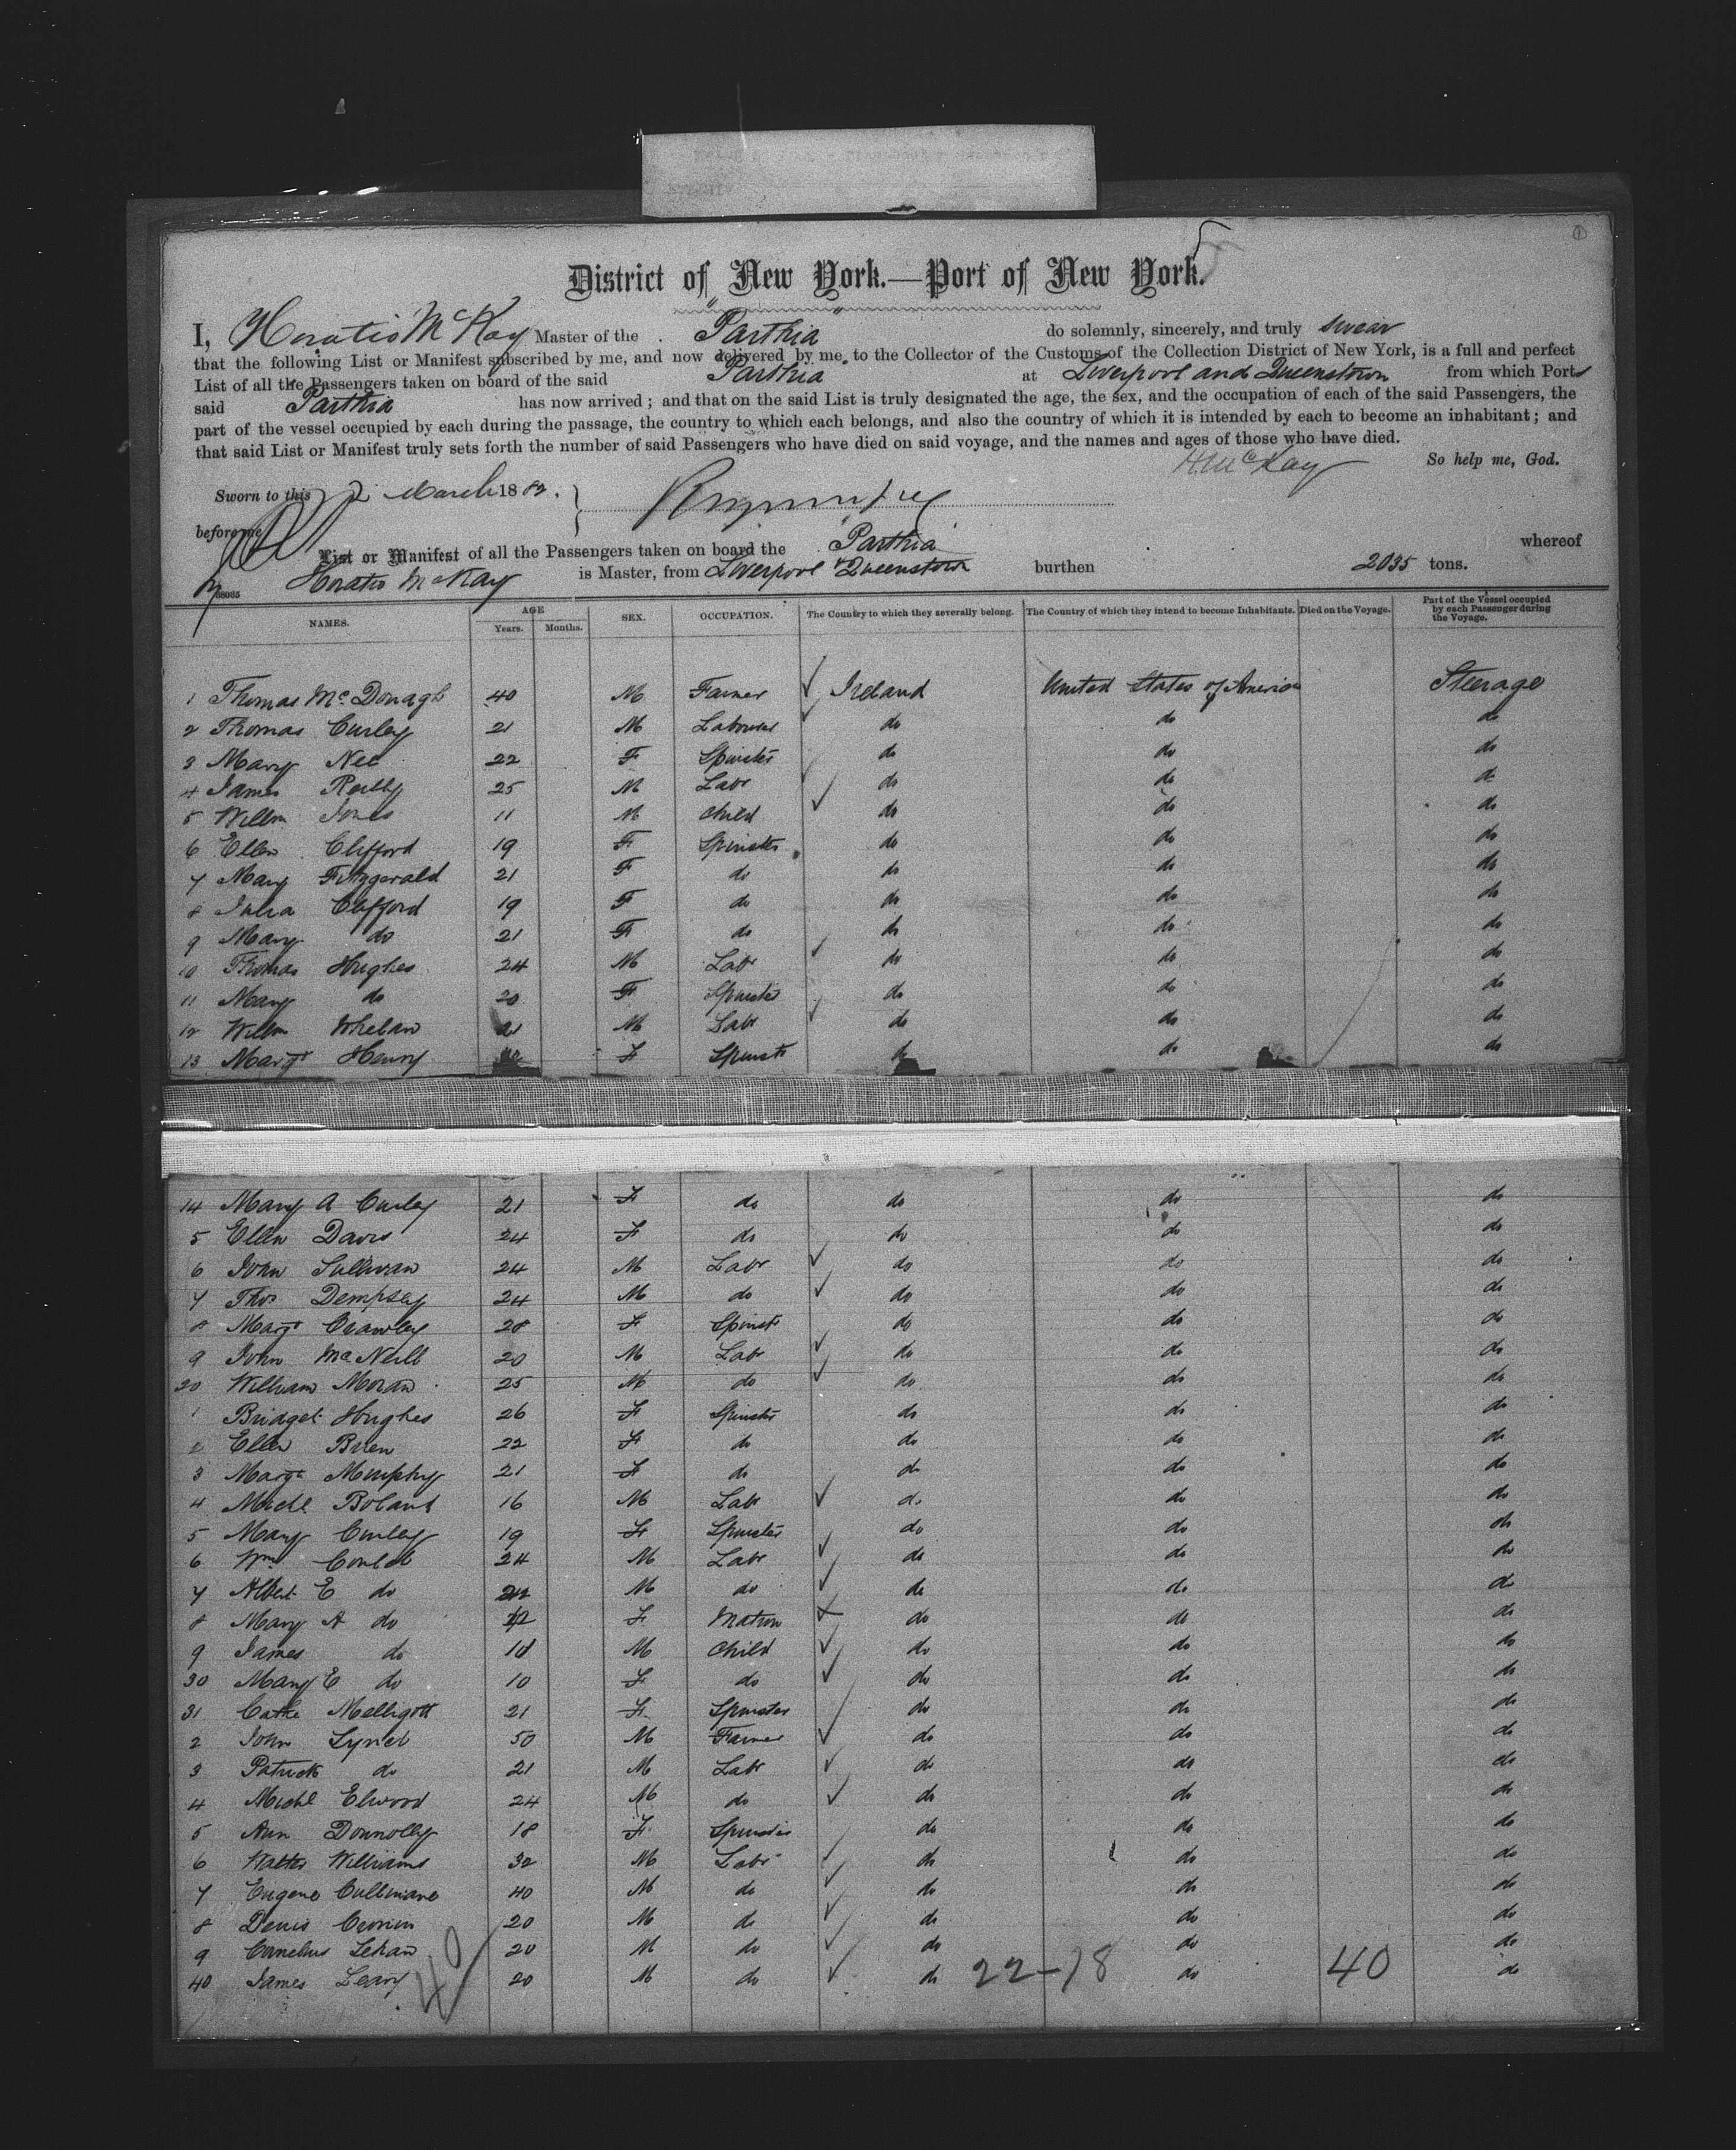 District of New York.—Port of New York.
I, Horatio McKay Master of the "Parthia" do solemnly, sincerely, and truly swear
that the following List or Manifest subscribed by me, and now delivered by me to the Collector of the Customs of the Collection District of New York, is a full and perfect
List of all the Passengers taken on board of the said "Parthia" at Liverpool and Queenstown from which Ports
said Parthia has now arrived; and that on the said List is truly designated the age, the sex, and the occupation of each of the said Passengers, the
part of the vessel occupied by each during the passage, the country to which each belongs, and also the country of which it is intended by each to become an inhabitant; and
that said List or Manifest truly sets forth the number of said Passengers who have died on said voyage, and the names and ages of those who have died.
H McKay So help me, God.
Sworn to this March 1882.
before me
List or Manifest of all the Passengers taken on board the "Parthia" whereof
Horatio McKay is Master, from Liverpool & Queenstown burthen 2035 tons.
NAMES. AGE Years. Months. SEX. OCCUPATION. The Country to which they severally belong. The Country of which they intend to become Inhabitants. Died on the Voyage. Part of the Vessel occupied by each Passenger during the Voyage.
1 Thomas McDonagh 40 M Farmer Ireland United States of America Steerage
2 Thomas Curley 21 M Labourer do do do
3 Mary Nee 22 F Spinster do do do
4 James Reilly 25 M Labr do do do
5 Willm Jones 11 M Child do do do
6 Ellen Clifford 19 F Spinster do do do
7 Mary Fitzgerald 21 F do do do do
8 Julia Clifford 19 F do do do do
9 Mary do 21 F do do do do
10 Thomas Hughes 24 M Labr do do do
11 Mary do 20 F Spinster do do do
12 Willm Whelan 21 M Labr do do do
13 Margt Henry F Spinst do do do
14 Mary A Curley 21 F do do do do
5 Ellen Davis 24 F do do do do
6 John Sullivan 24 M Labr do do do
7 Thos Dempsey 24 M do do do do
8 Margt Crawley 28 F Spinst do do do
9 John McNeill 20 M Labr do do do
20 William Moran 25 M do do do do
1 Bridget Hughes 26 F Spinster do do do
2 Ellen Brien 22 F do do do do
3 Margt Murphy 21 F do do do do
4 Michl Boland 16 M Labr do do do
5 Mary Curley 19 F Spinster do do do
6 Wm 24 M Labr do do do
7 Albert E do M do do do do
8 Mary A do F Matron do do do
9 James do M Child do do do
30 Mary E do 10 F do do do do
31 Cathe Melligott 21 F Spinster do do do
2 John Lynch 50 M Farmer do do do
3 Patrick do 21 M Labr do do do
4 Michl Elwood 24 M do do do do
5 Ann Donnolly 18 F Spinster do do do
6 Walter Williams 32 M Labr do do do
7 Eugene Cullinane 40 M do do do do
8 Denis Cronin 20 M do do do do
9 Cornelius Lehan 20 M do do do do
40 James Leary 20 M do do 22-18 do 40 do
40